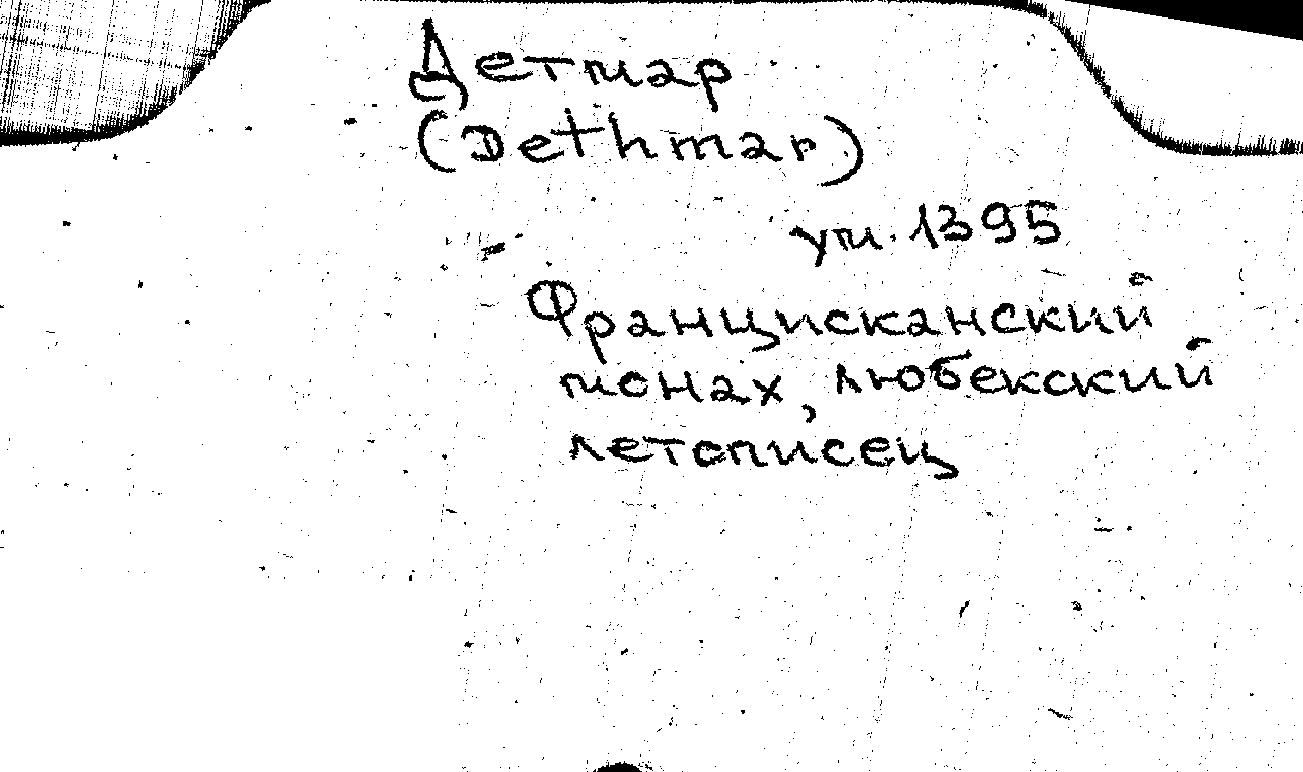 Детмар
(Dethmar)
ум. 1395
Францисканский
монах, любекский
летописец